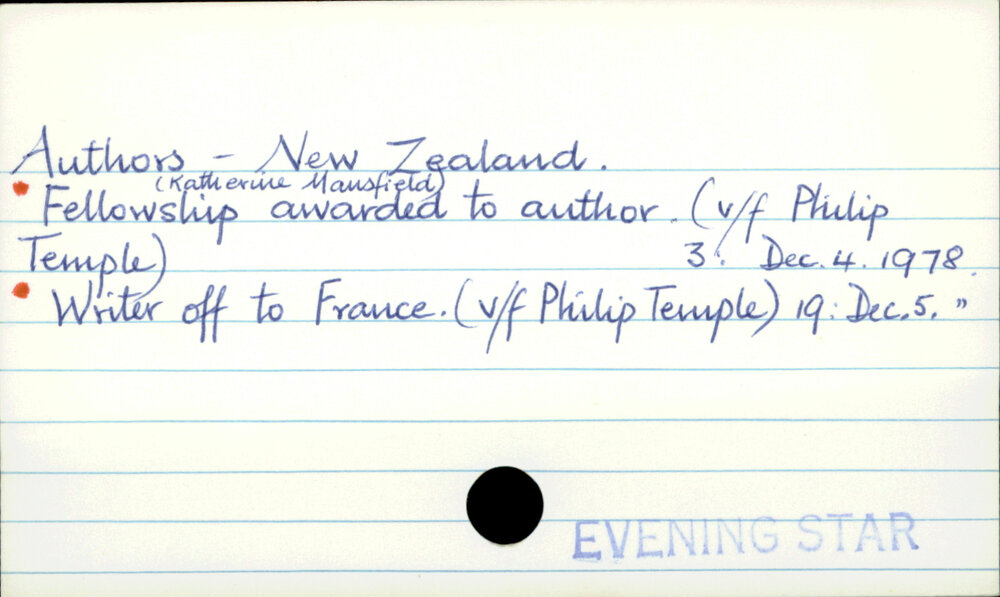 Authors - New Zealand.
(Katherine Mansfield)
Fellowship awarded to author. (v/f Philip
Temple) 3: Dec. 4. 1978.
Writer off to France. (v/f Philip Temple) 19: Dec. 5. "
EVENING STAR